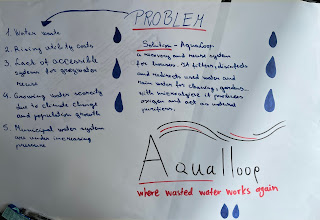 PROBLEM
1. Water waste
2. Rising utility costs
3. Lack of accessible
systems for greywater
reuse
4. Growing water scarcity
due to climate change
and population growth
5. Municipal water system
are under increasing
pressure
Solution - AquaLoop
a recovery and reuse system
for homes. It filters, disinfects
and redirects used water and
rain water for cleaning, gardens
with microalgae it produces
oxygen and act as natural
purifiers.
Aqualloop
where wasted water works again